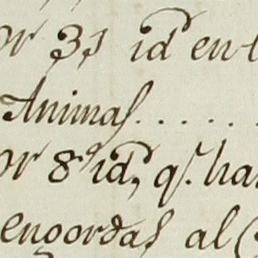 or 3,, id en
Animas......
or 8,, id, q.
engordas al